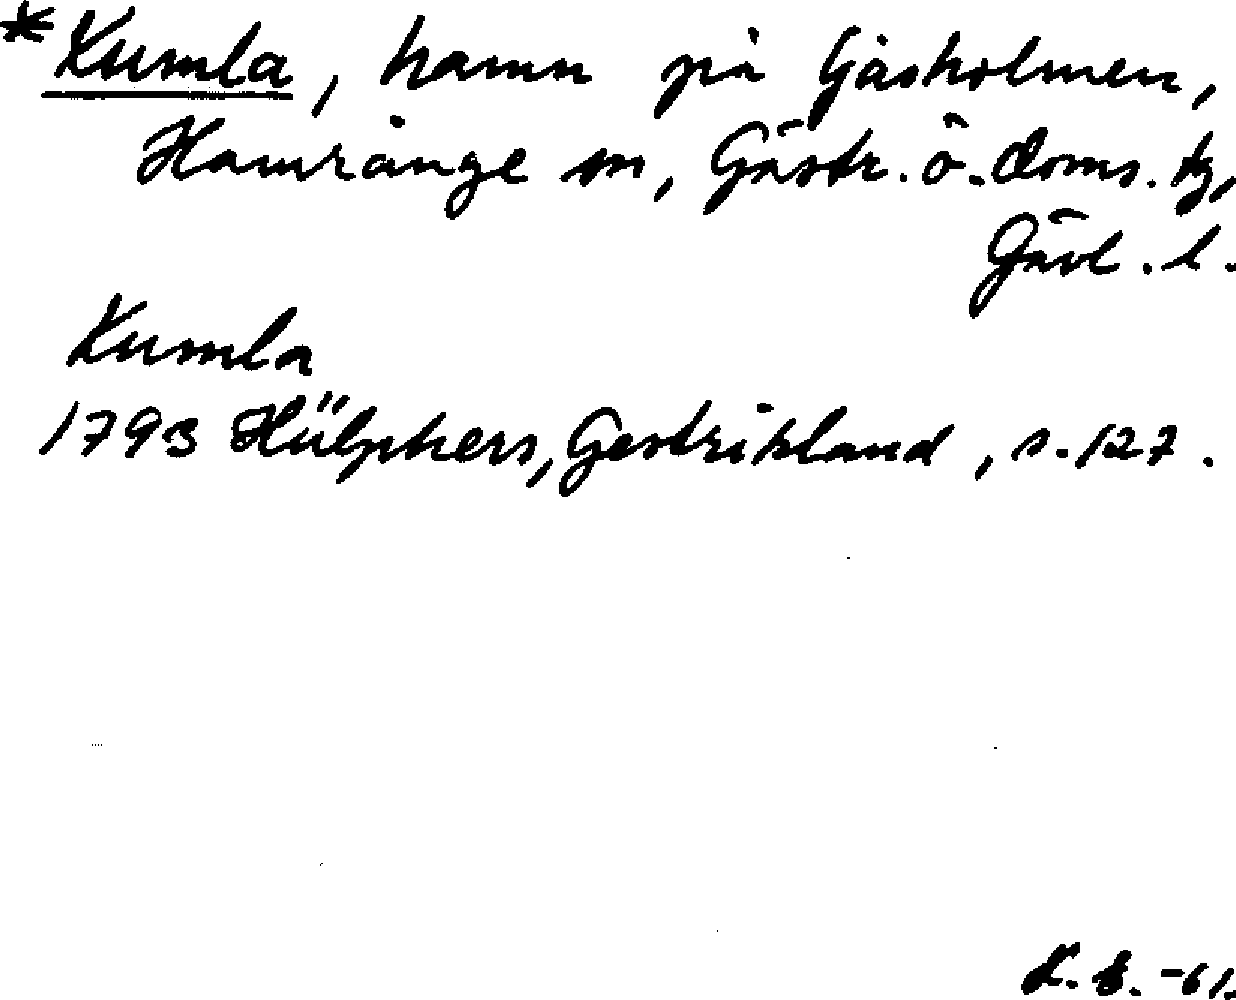 *Kumla, hamn på Gåsholmen,
Hamrånge sn, Gästr. ö. doms. tg,
Gävl. l.
Kumla
1793 Hülphers, Gestrikland, s. 127.
-61.